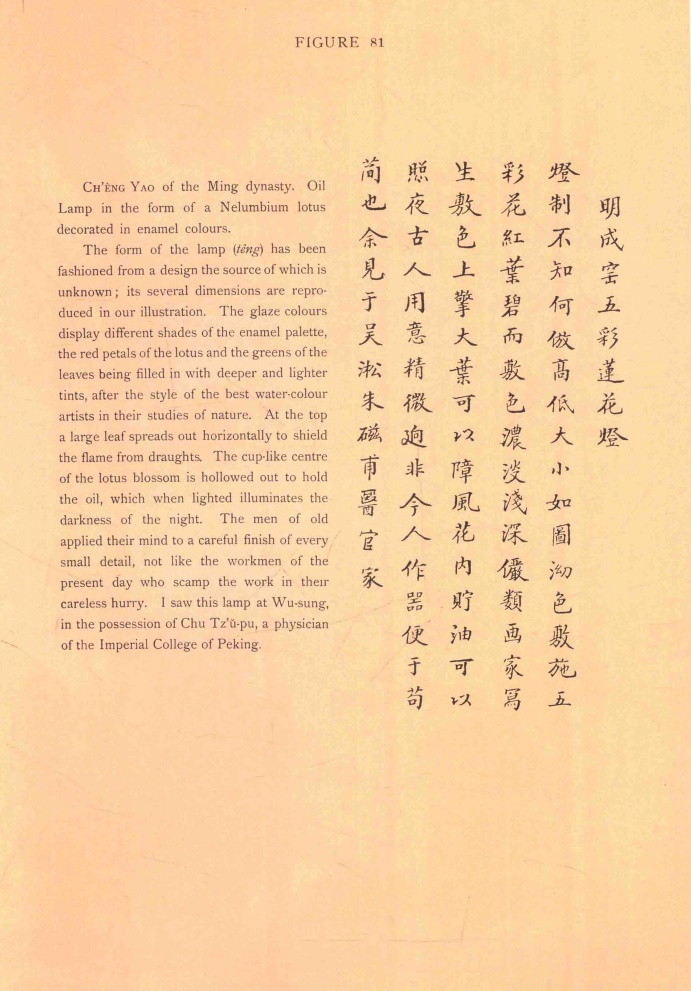 FIGURE 81
CH'ÊNG YAO of the Ming dynasty. Oil
Lamp in the form of a Nelumbium lotus
decorated in enamel colours.
The form of the lamp (têng) has been
fashioned from a design the source of which is
unknown; its several dimensions are repro-
duced in our illustration. The glaze colours
display different shades of the enamel palette,
the red petals of the lotus and the greens of the
leaves being filled in with deeper and lighter
tints, after the style of the best water-colour
artists in their studies of nature. At the top
a large leaf spreads out horizontally to shield
the flame from draughts. The cup-like centre
of the lotus blossom is hollowed out to hold
the oil, which when lighted illuminates the
darkness of the night. The men of old
applied their mind to a careful finish of every
small detail, not like the workmen of the
present day who scamp the work in their
careless hurry. I saw this lamp at Wu-sung,
in the possession of Chu Tz'ŭ-pu, a physician
of the Imperial College of Peking.
明成窑五彩蓮花燈
燈制不知何倣髙低大小如圖泑色敷施五
彩花紅葉碧而敷色濃淡淺深儼類画家寫
生敷色上擎大葉可以障風花内貯油可以
照夜古人用意精微迥非今人作器便于苟
简也余見于吴淞朱磁甫醫官家